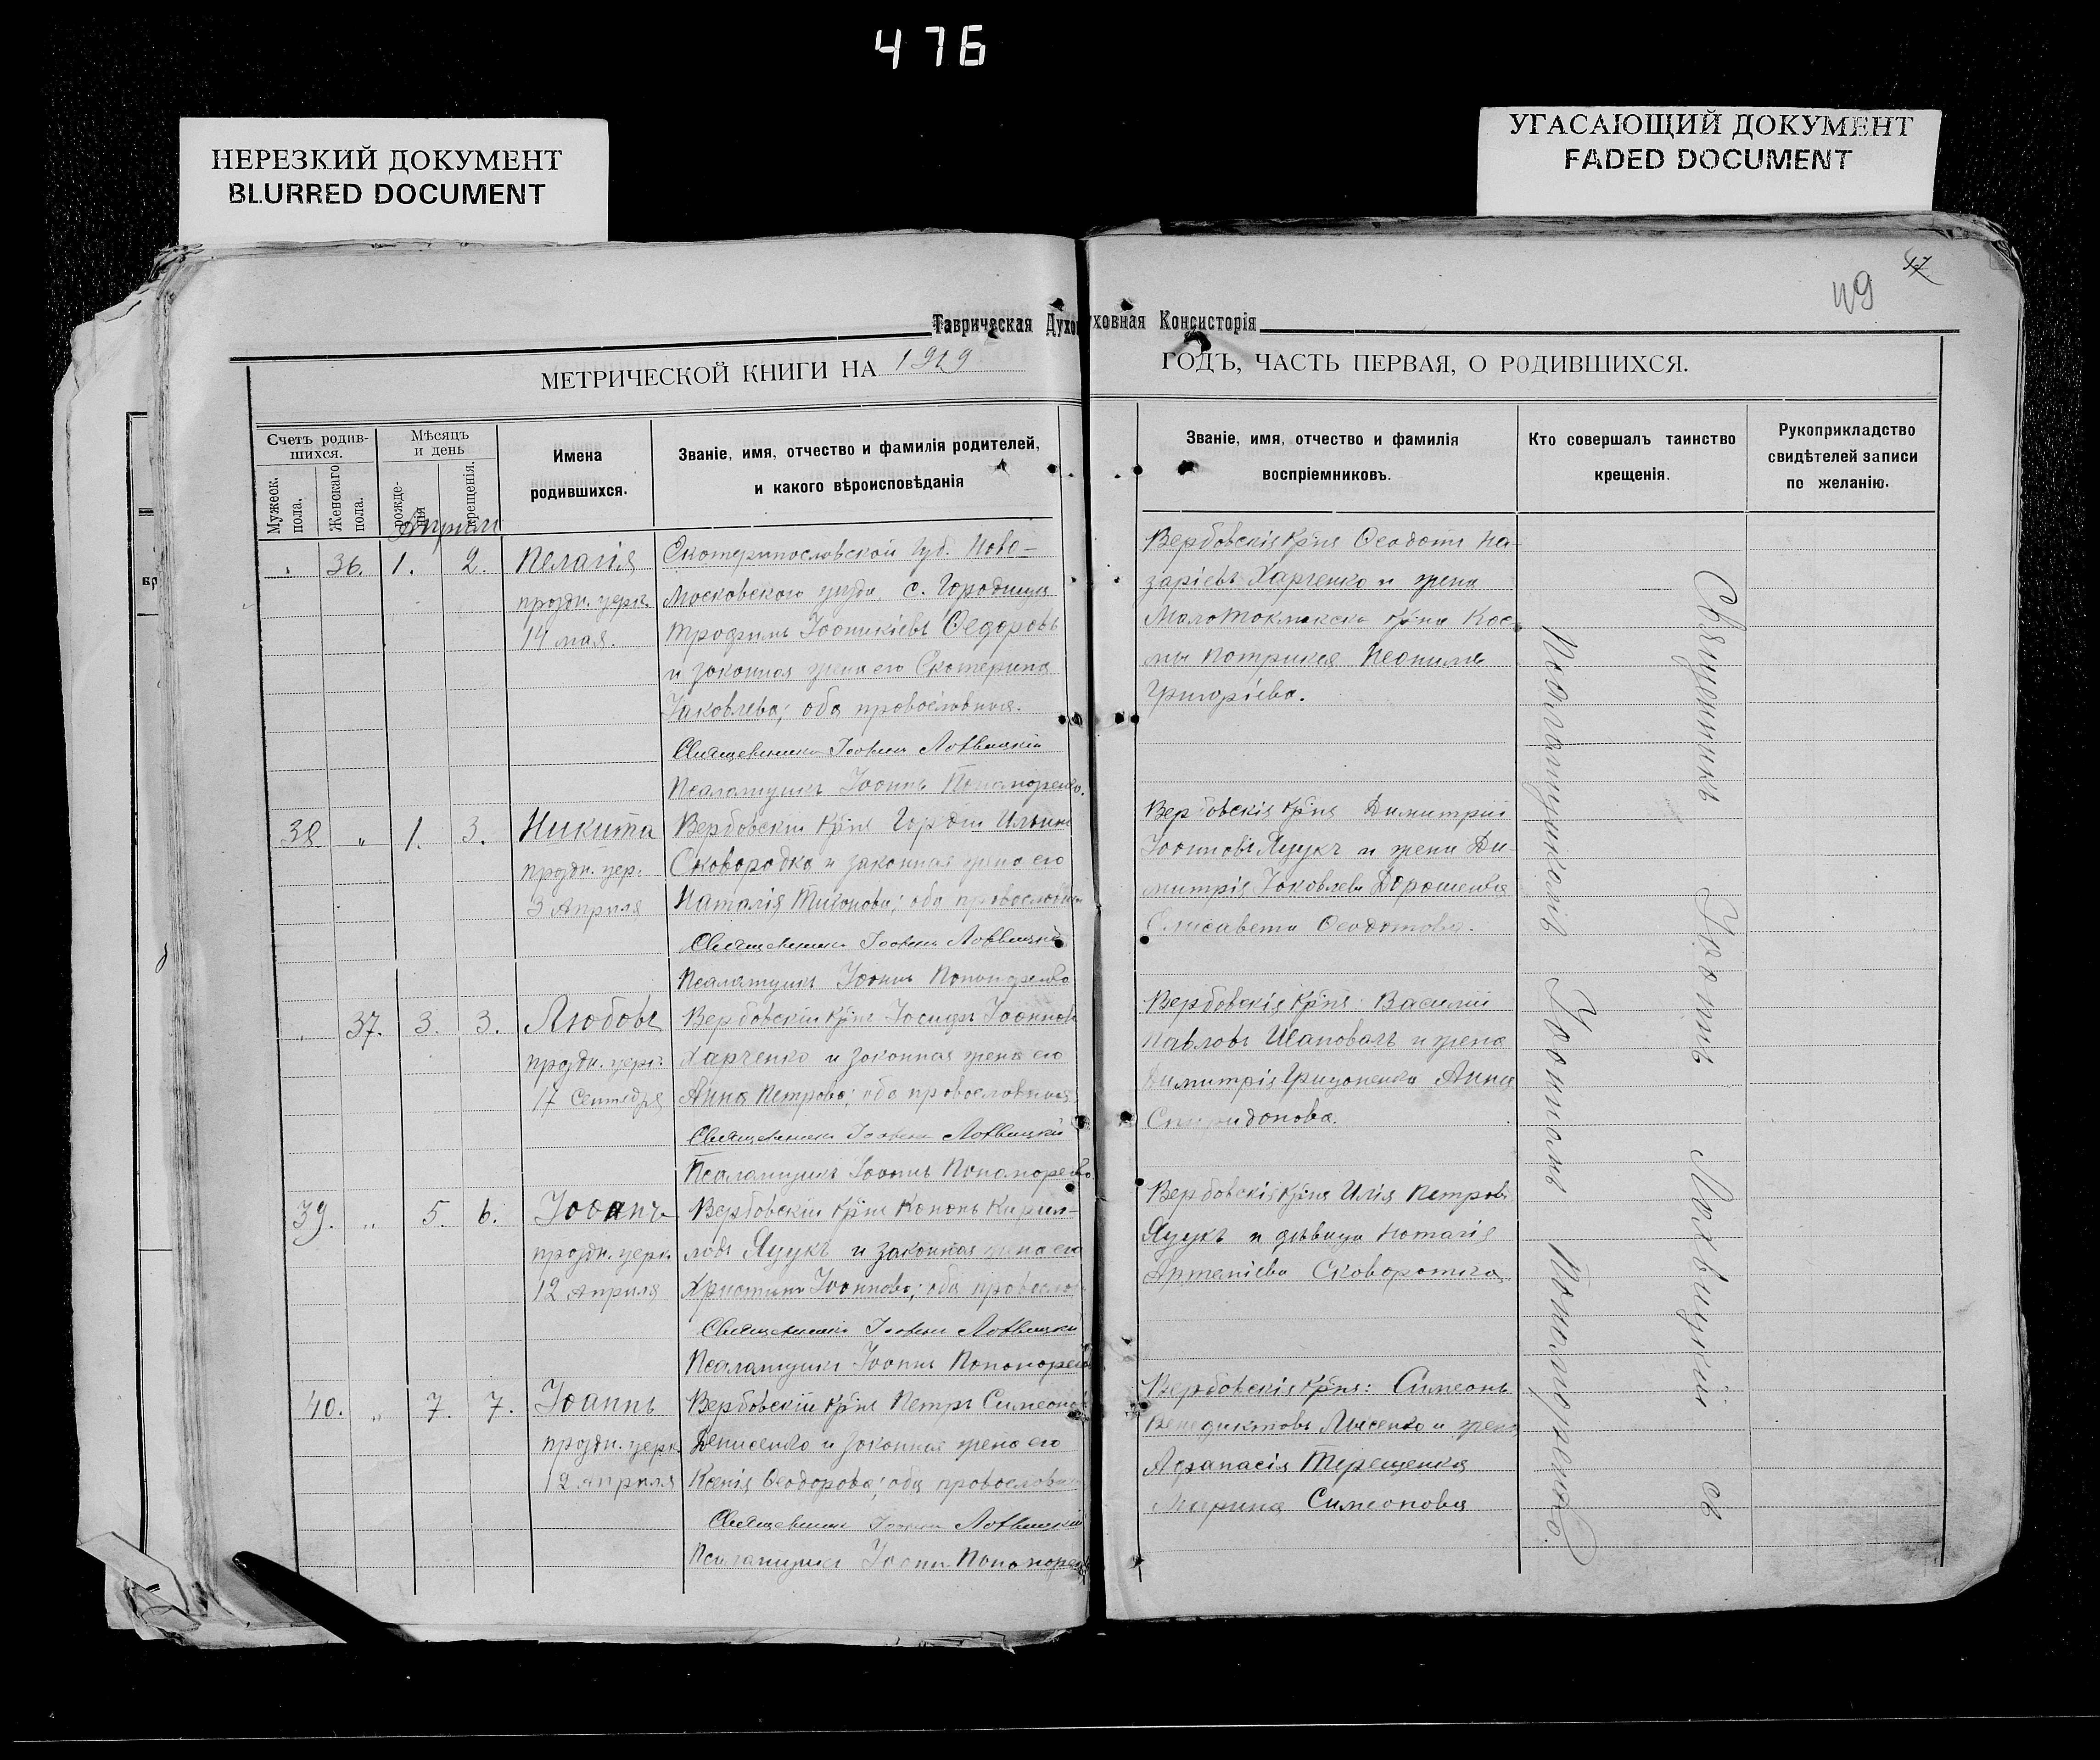 476
НЕРЕЗКИЙ ДОКУМЕНТ
BLURRED DOCUMENT
УГАСАЮЩИЙ ДОКУМЕНТ
FADED DOCUMENT
49
Таврическая Духовная Консисторія
МЕТРИЧЕСКОЙ КНИГИ НА 1919 ГОДЪ, ЧАСТЬ ПЕРВАЯ, О РОДИВШИХСЯ.
Счетъ родив-
шихся.
Мужеск. пола.
Женскаго пола.
Мѣсяцъ
и день
рожде-
нія
крещенія.
Имена
родившихся.
Званіе, имя, отчество и фамилія родителей,
и какого вѣроисповѣданія
Званіе, имя, отчество и фамилія
воспріемниковъ.
Кто совершалъ таинство
крещенія.
Рукоприкладство
свидѣтелей записи
по желанію.
Апрѣль
36. 1. 2. Пелагія
праздн. церк.
14 мая.
Екатеринославской губ. Ново-
московскаго уѣзда, с. Городища
Трофимъ Іоаникіевъ Ѳедоровъ
и законная жена его Екатерина
Іаковлева; оба православныя.
Священникъ Іоаннъ Лохвицкій
Псаломщикъ Іоаннъ Пономаренко.
Вербовскія кр̃не Ѳеодотъ На-
заріевъ Харченко и жена
Малотокмакск. кр̃на Кос-
мы
Григоріева.
38 " 1. 3. Никита
праздн. цер.
3 Апрѣля
Вербовскій кр̃нъ Гордій Ильинъ
Сковородка и законная жена его
Наталія Тихонова; оба православныя
Священникъ Іоаннъ Лохвицкій
Псаломщикъ Іоаннъ Пономаренко
Вербовскія кр̃не Димитрій
Іоанновъ Яцукъ и жена Ди-
митрія Іаковлева Дорошенка
Елисавета Ѳеодотова.
37. 3. 3. Любовь
праздн. церк.
17 Сентября
Вербовскій кр̃нъ Іосифъ Іоанновъ
Харченко и законная жена его
Анна Петрова; оба православныя
Священникъ Іоаннъ Лохвицкій
Псаломщикъ Іоаннъ Пономаренко
Вербовскія кр̃не: Василій
Павловъ Шаповалъ и жена
Димитрія Грицаненка Анна
Спиридонова.
39. " 5. 6. Іоаннъ
праздн. церк.
12 Апрѣля
Вербовскій кр̃нъ Кононъ Кирил-
ловъ Яцукъ и законная жена его
Христина Іоаннова; оба правосл
Священникъ Іоаннъ Лохвицкій
Псаломщикъ Іоаннъ Пономаренко
Вербовскія кр̃не Илія Петровъ
Яцукъ и дѣвица Наталія
Артеміева
40. " 7. 7. Іоаннъ
праздн. церк.
12 апрѣля
Вербовскій кр̃нъ Петръ Симеоновъ
Денисенко и законная жена его
Ксенія Ѳеодорова; оба православныя
Священникъ Іоаннъ Лохвицкій
Псаломщикъ Іоаннъ Пономаренко
Вербовскія кр̃не: Симеонъ
Венедиктовъ Лисенко и жена
Аѳанасія Терещенка
Марина Симеонова
Священникъ Іоаннъ Лохвицкій съ
Псаломщикомъ Іоанномъ Пономаренко.